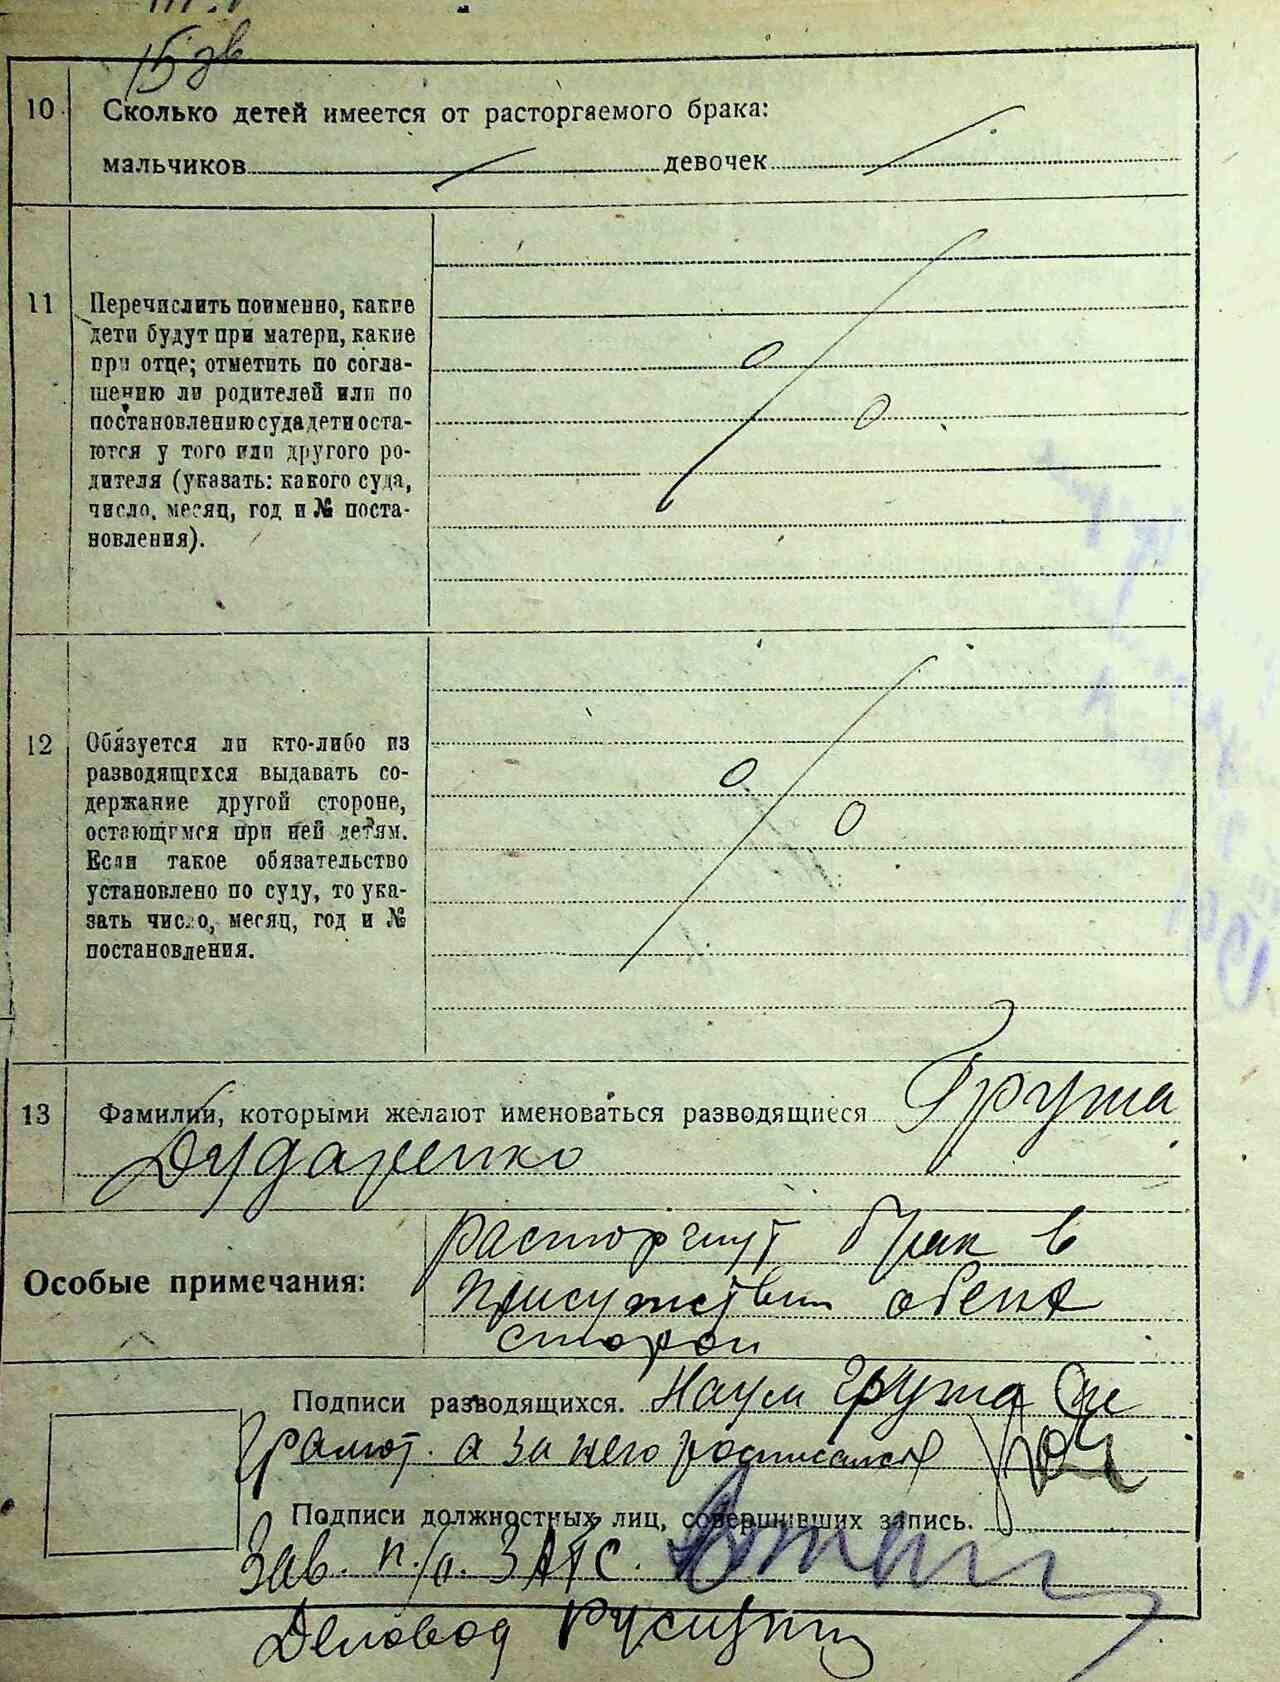 15 зв
10 Сколько детей имеется от расторгаемого брака:
мальчиков — девочек —
11 Перечислить поименно, какие
дети будут при матери, какие
при отце; отметить по согла-
шению ли родителей или по
постановлению суда дети оста-
ются у того или другого ро-
дителя (указать: какого суда,
число, месяц, год и № поста-
новления).
12 Обязуется ли кто-либо из
разводящихся выдавать со-
держание другой стороне,
остающимся при ней детям.
Если такое обязательство
установлено по суду, то ука-
зать число, месяц, год и №
постановления.
13 Фамилии, которыми желают именоваться разводящиеся Гружа
Дударенко
Особые примечания:
расторгнут брак в
присутствии обеих
сторон
Подписи разводящихся. Наум Гружа
грамот. а за него росписался
Подписи должностных лиц, совершивших запись.
Зав. п/о. ЗАГС.
Деловод